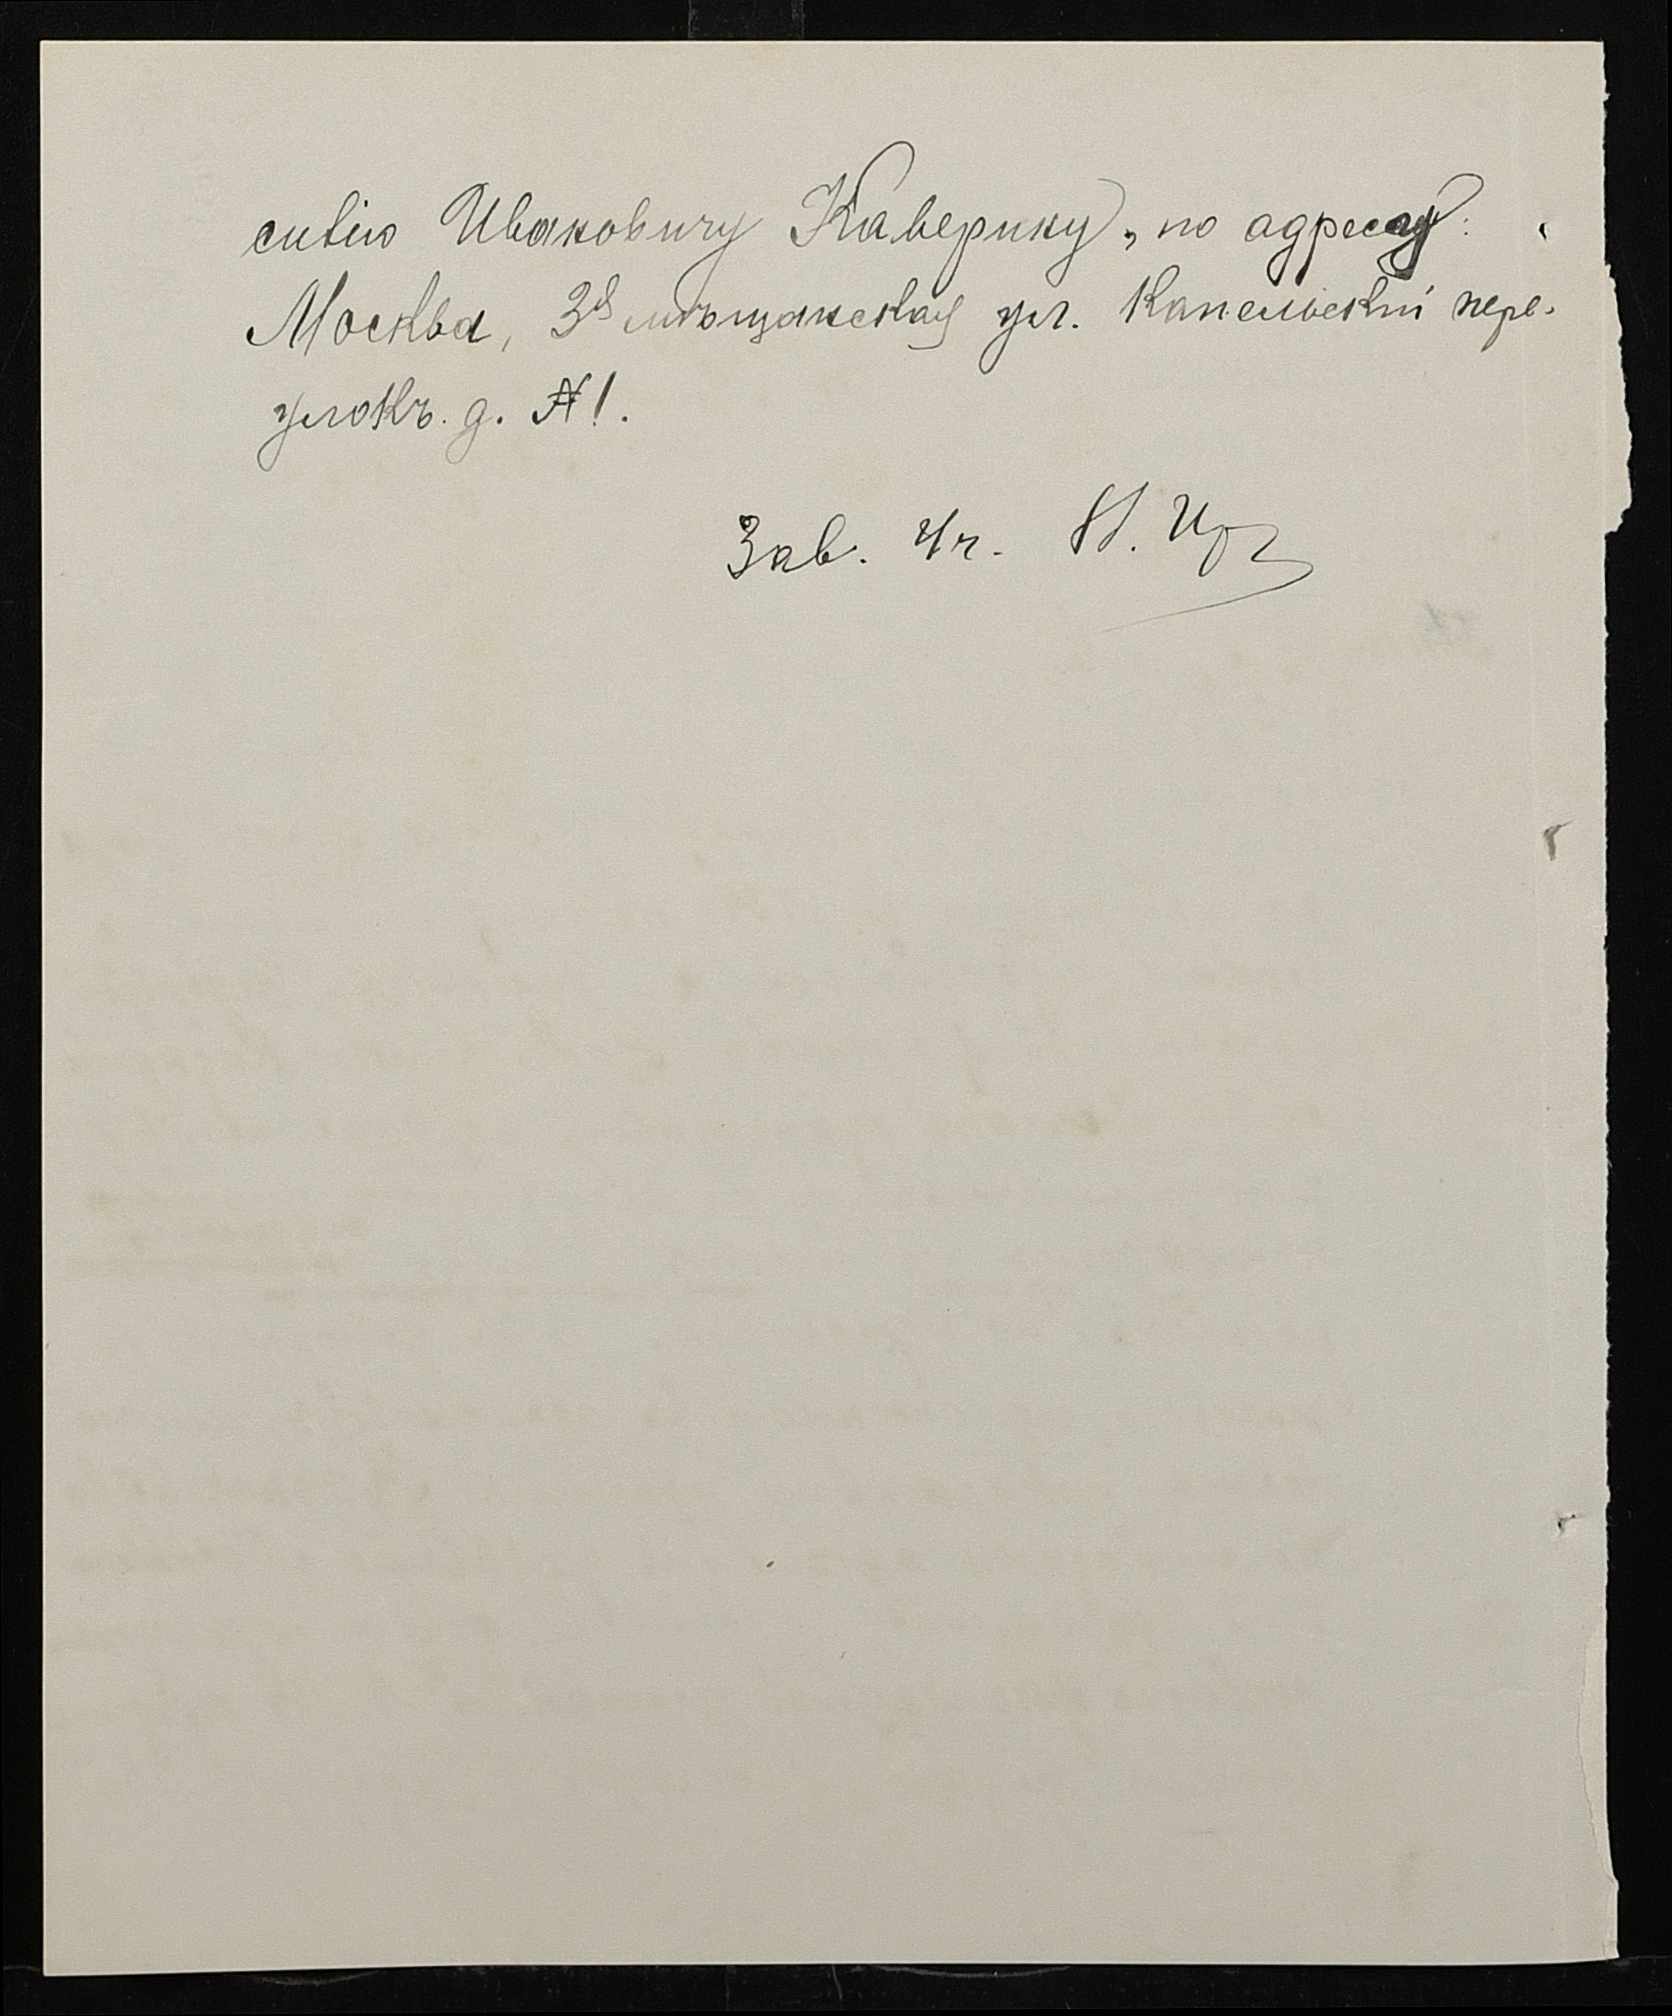 силію Ивановичу Каверину, по адресу:
Москва, 3я мѣщанская ул. Капельскій пере-
улокъ. д. № 1.
Зав. Уч. Н.